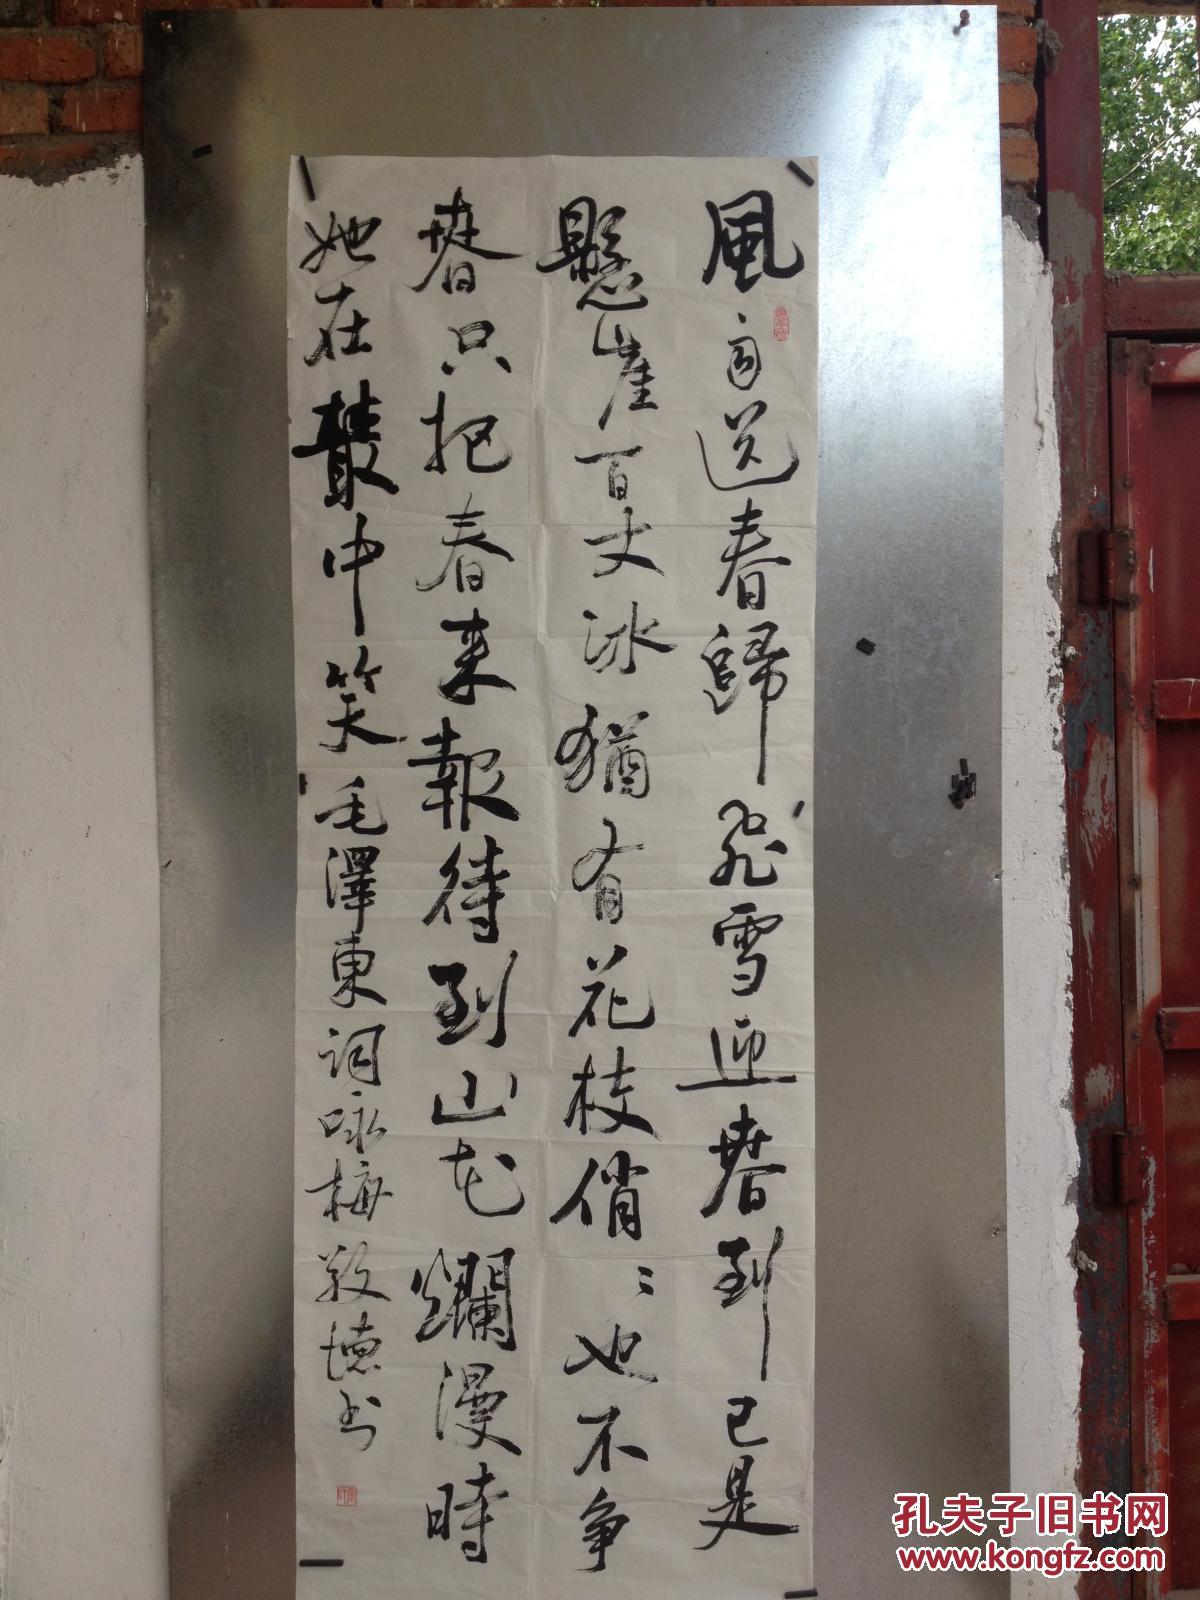 風雨送春歸飛雪迎春到已是
懸崖百丈冰猶有花枝俏〻也不争
春只把春来報待到山花爛漫時
她在叢中笑毛澤東詞咏梅敬德书
孔夫子旧书网
www.kongfz.com